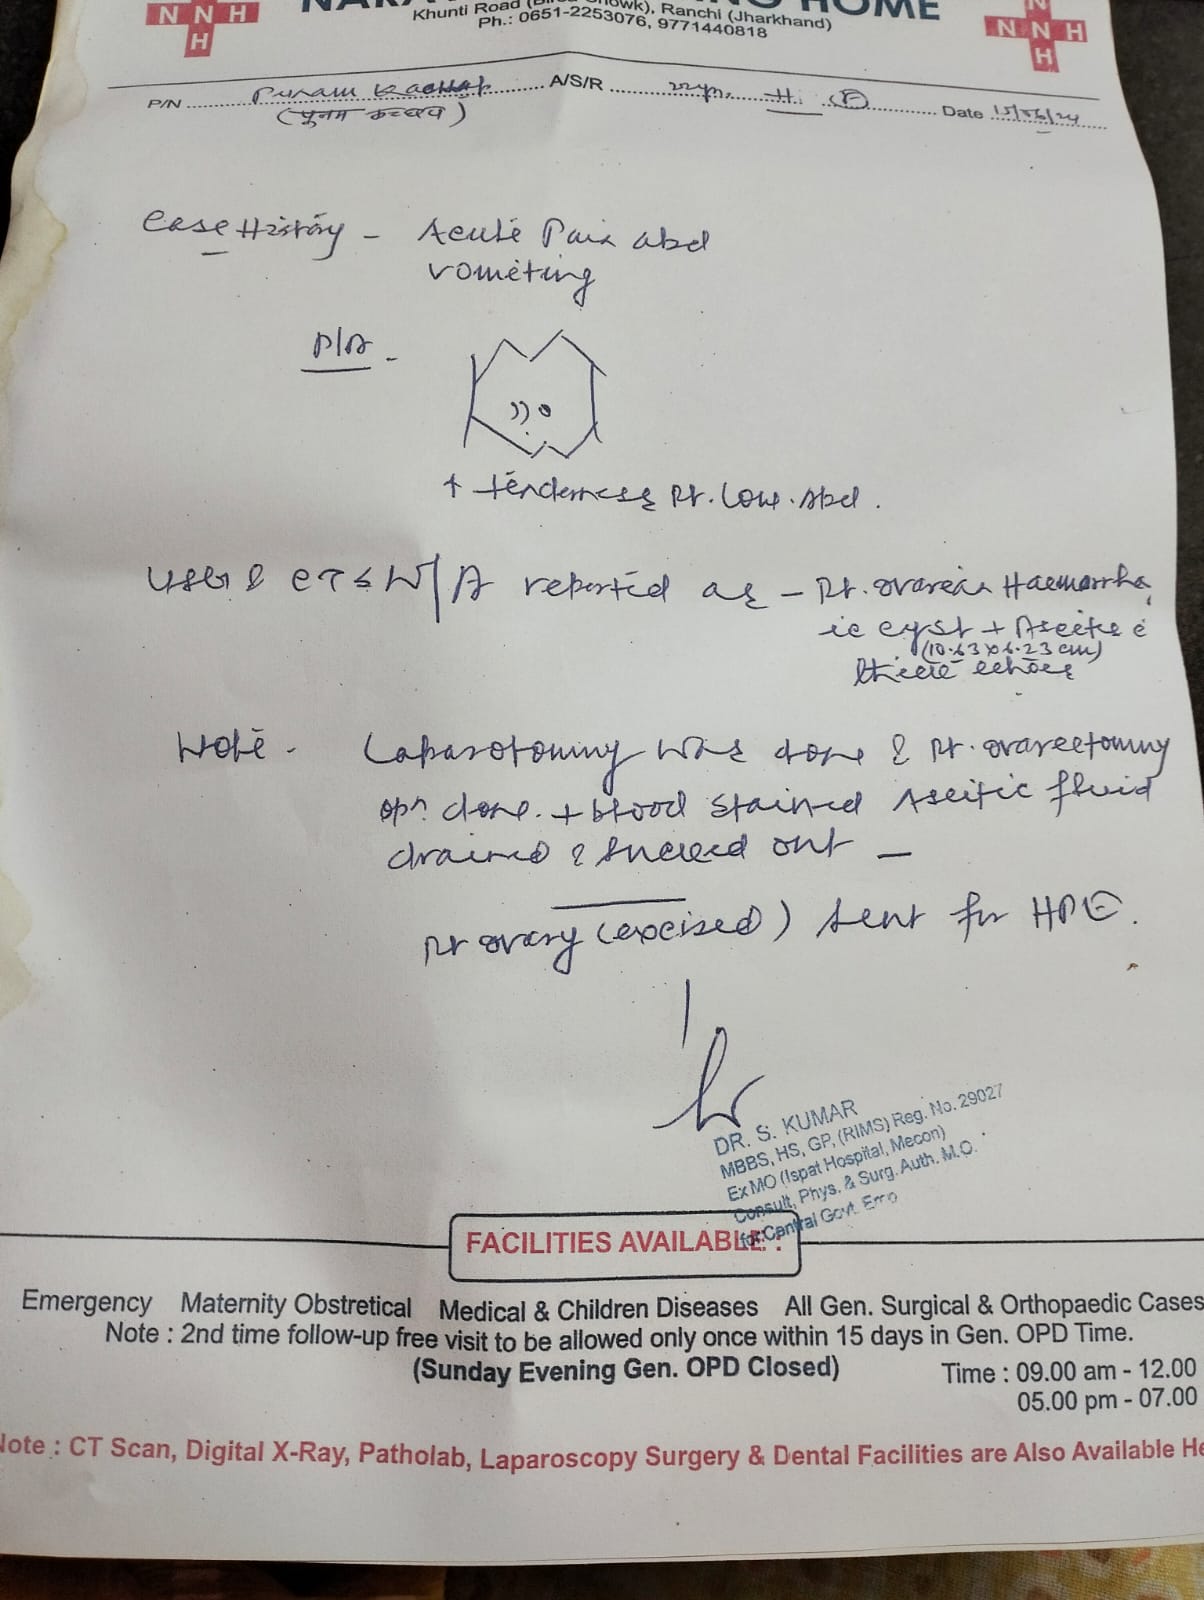 N N H
H
NURSING HOME
Khunti Road Chowk), Ranchi (Jharkhand)
Ph.: 0651-2253076, 9771440818
N
N N H
H
P/N Punam Kachhap A/S/R 22yr. H. (F) Date 15/06/24
(पुनम कच्छप)
Case History - Acute Pain abd
vometing
P/A -
↑ tenderness Rt. low. Abd.
USG & CT W/A reported as - Rt. ovarian Haemorrha
ic cyst + Ascites c
(10.63x6.23 cm)
echoes
Note - Laparotomy was done & Rt. ovarectomy
opn done. + blood stained Ascitic fluid
drained & sucked out -
Rt ovary (excised) sent for HPE.
DR. S. KUMAR
MBBS, HS, GP, (RIMS) Reg. No. 29027
Ex MO (Ispat Hospital, Mecon)
Consult, Phys. & Surg. Auth. M.O.
for Central Govt. Emp
FACILITIES AVAILABLE :
Emergency Maternity Obstretical Medical & Children Diseases All Gen. Surgical & Orthopaedic Cases
Note : 2nd time follow-up free visit to be allowed only once within 15 days in Gen. OPD Time.
(Sunday Evening Gen. OPD Closed) Time : 09.00 am - 12.00
05.00 pm - 07.00
Note : CT Scan, Digital X-Ray, Patholab, Laparoscopy Surgery & Dental Facilities are Also Available He